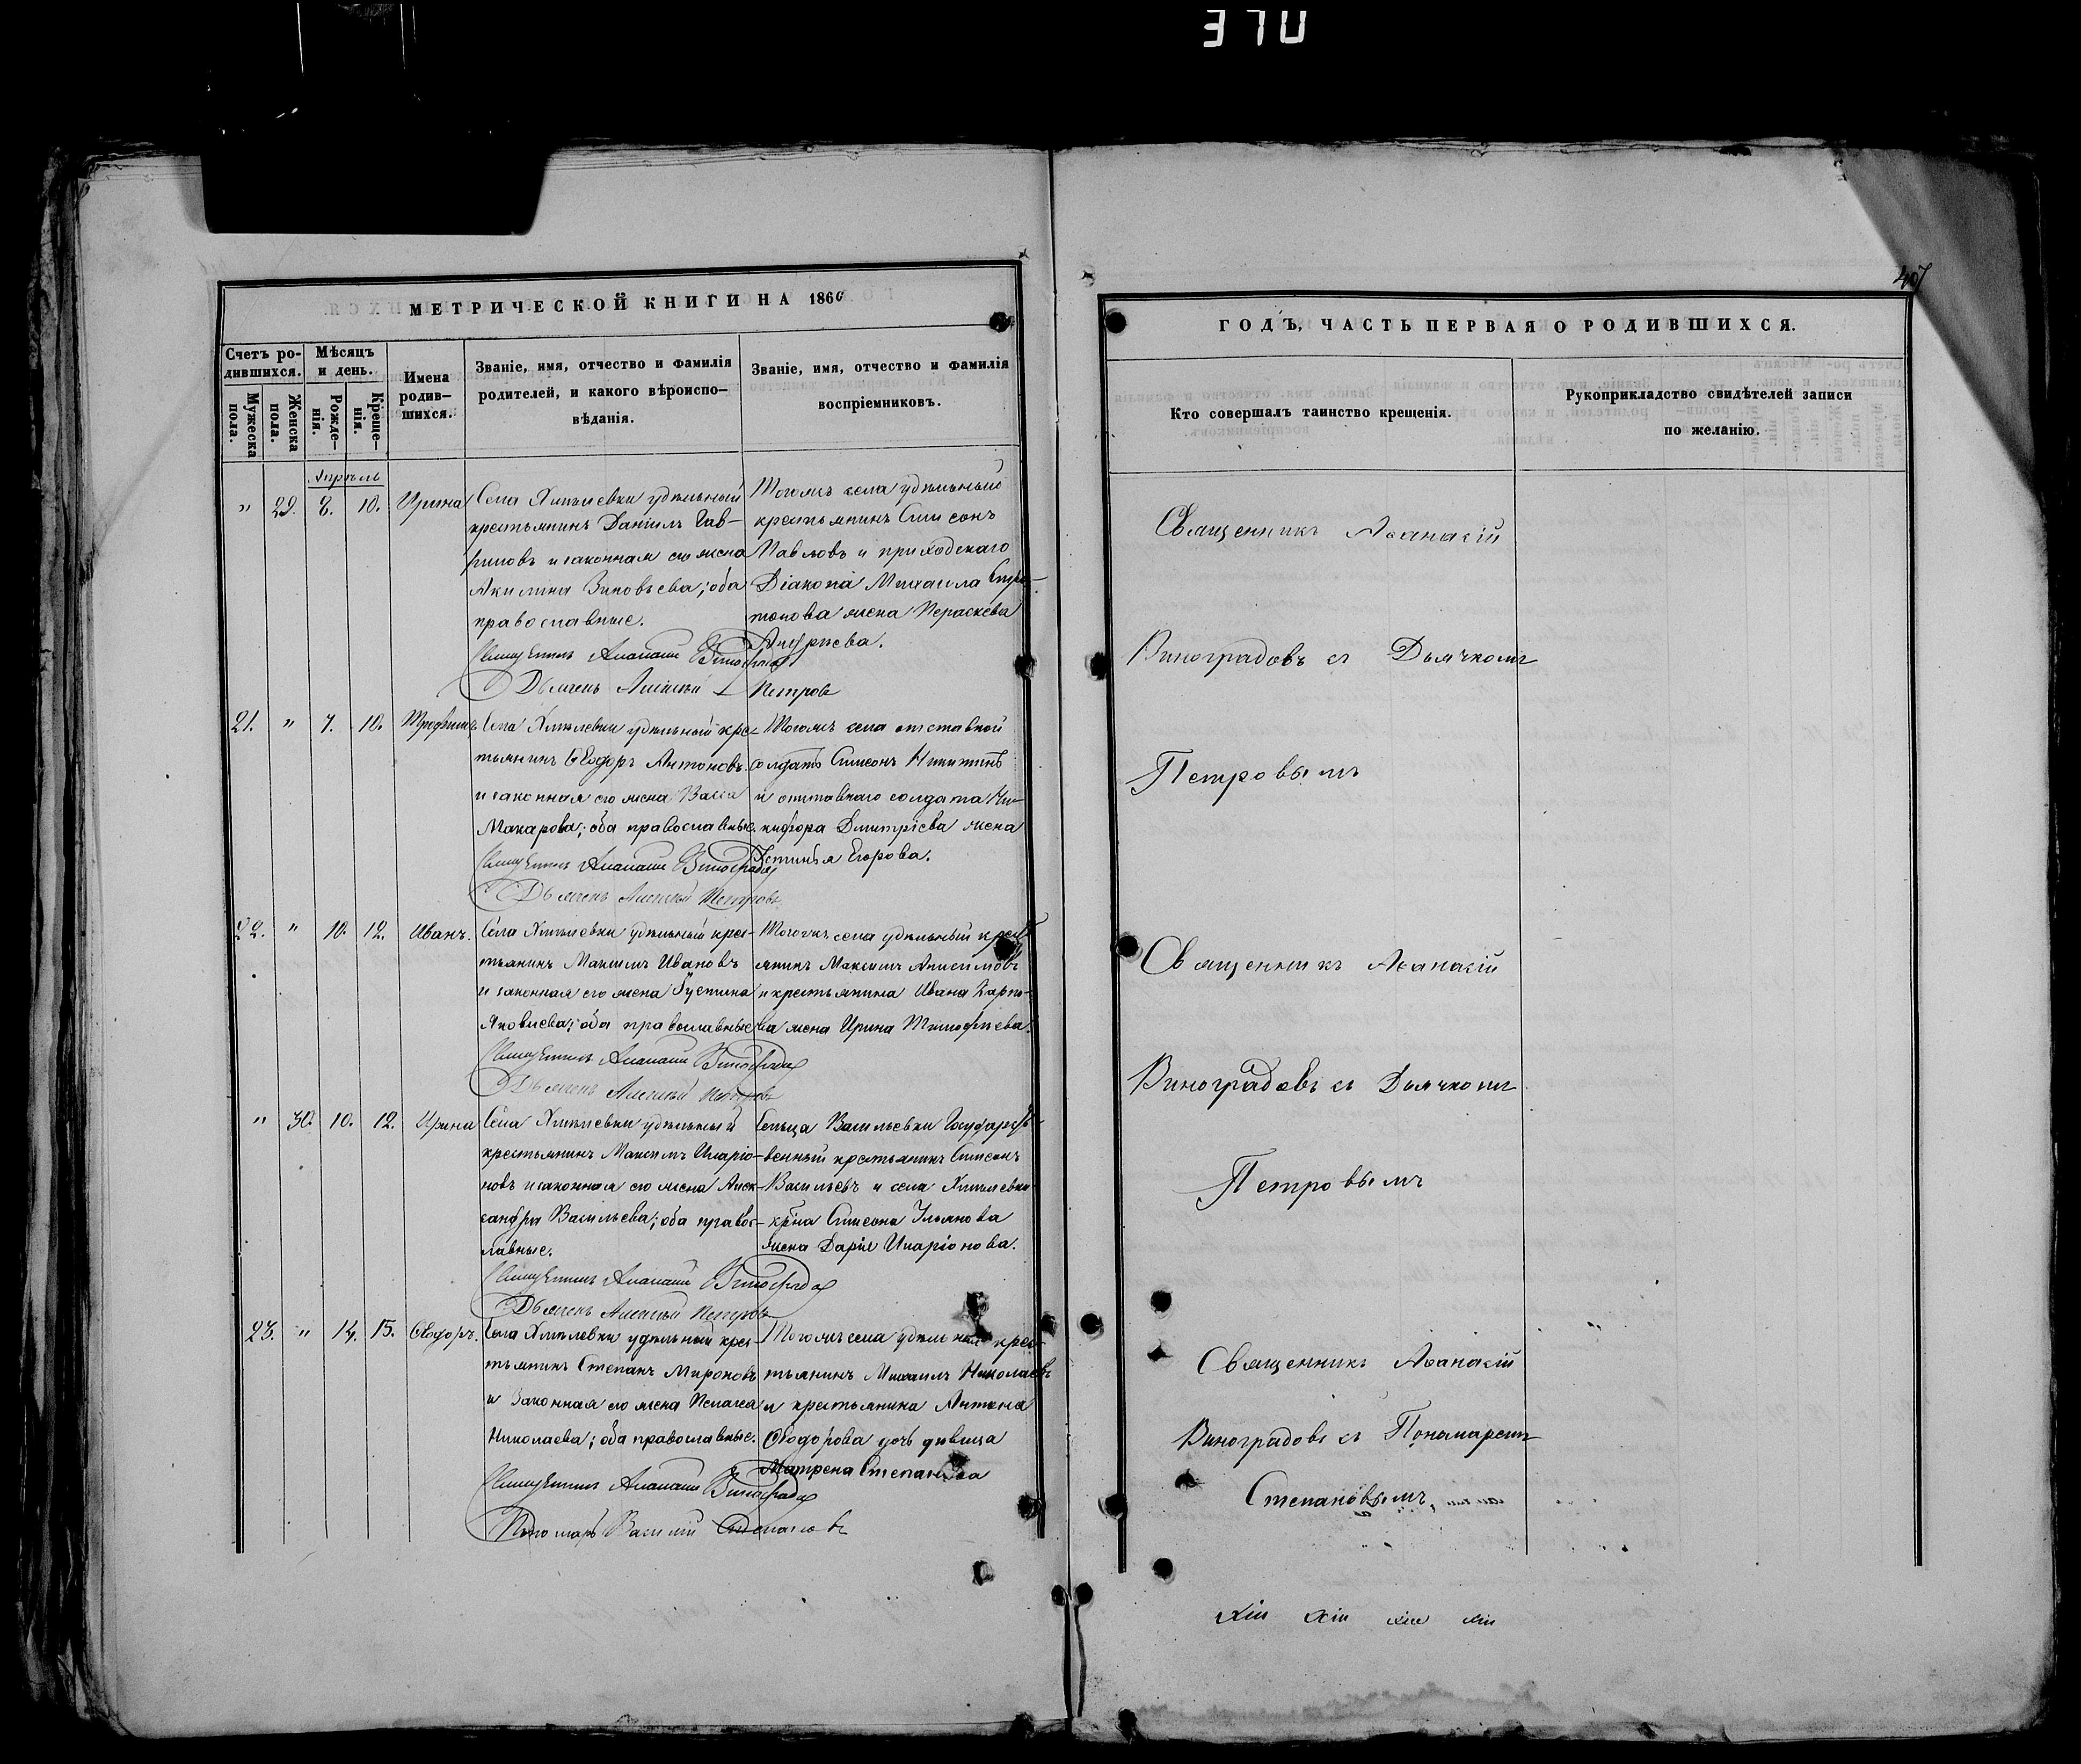 370
407
МЕТРИЧЕСКОЙ КНИГИ НА 1860
Счетъ ро-
дившихся.
Мѣсяцъ
и день.
Имена
родив-
шихся.
Званіе, имя, отчество и фамилія
родителей, и какого вѣроиспо-
вѣданія.
Званіе, имя, отчество и фамилія
воспріемниковъ.
Мужеска
пола.
Женска
пола.
Рожде-
нія.
Креще-
нія.
Апрѣль
" 29. 8. 10. Ирина
Села Хмѣлевки удѣльный
крестьянинъ Даніилъ Гав-
риловъ и законная его жена
Акилина Зиновьева; оба
православные.
Тогожъ села удѣльный
крестьянинъ Симеонъ
Павловъ и приходскаго
Діакона Михаила
жена Параскева
Андреева.
Священникъ Аѳанасій Виноградовъ
Дьячекъ Алексѣй Петровъ
21. " 7. 10. Трофимъ
Села Хмѣлевки удѣльный крес-
тьянинъ Ѳеодоръ Антоновъ
и законная его жена Васса
Макарова; оба православные.
Тогожъ села отставной
солдатъ Симеонъ Никитинъ
и отставнаго солдата Ни-
кифора Дмитріева жена
Устинья Егорова.
Священникъ Аѳанасій Виноградовъ
Дьячекъ Алексѣй Петровъ
22. " 10. 12. Иванъ.
Села Хмѣлевки удѣльный крес-
тьянинъ Максимъ Ивановъ
и законная его жена Іустина
Яковлева; оба православные
Тогожъ села удѣльный крест
янинъ Максимъ Анисимовъ
и крестьянина Ивана Карпо-
ва жена Ирина Тимофеева.
Священникъ Аѳанасій Виноградовъ
Дьячекъ Алексѣй Петровъ
" 30. 10. 12. Ирина
Села Хмѣлевки удѣльный
крестьянинъ Максимъ Иларіо-
новъ и законная его жена Алек-
сандра Васильева; оба правос-
лавные.
Сельца Васильевки Государст-
венный крестьянинъ Симеонъ
Васильевъ и села Хмѣлевки
кр̃на Симеона Ульянова
жена Дарія Иларіонова.
Священникъ Аѳанасій Виноградовъ
Дьячекъ Алексѣй Петровъ
23. " 14. 15. Ѳеодоръ.
Села Хмѣлевки удѣльный крес-
тьянинъ Степанъ Мироновъ
и Законная его жена Пелагея
Николаева; оба православные.
Тогожъ села удѣльный крес-
тьянинъ Михаилъ Николаевъ
и крестьянина Антона
Ѳеодорова дочь дѣвица
Матрена Степанова
Священникъ Аѳанасій Виноградовъ
Пономарь Василій Степановъ
ГОДЪ, ЧАСТЬ ПЕРВАЯ О РОДИВШИХСЯ.
Кто совершалъ таинство крещенія.
Рукоприкладство свидѣтелей записи
по желанію.
Священникъ Аѳанасій
Виноградовъ съ Дьячкомъ
Петровымъ
Священникъ Аѳанасій
Виноградовъ съ Дьячкомъ
Петровымъ
Священникъ Аѳанасій
Виноградовъ съ Пономаремъ
Степановымъ